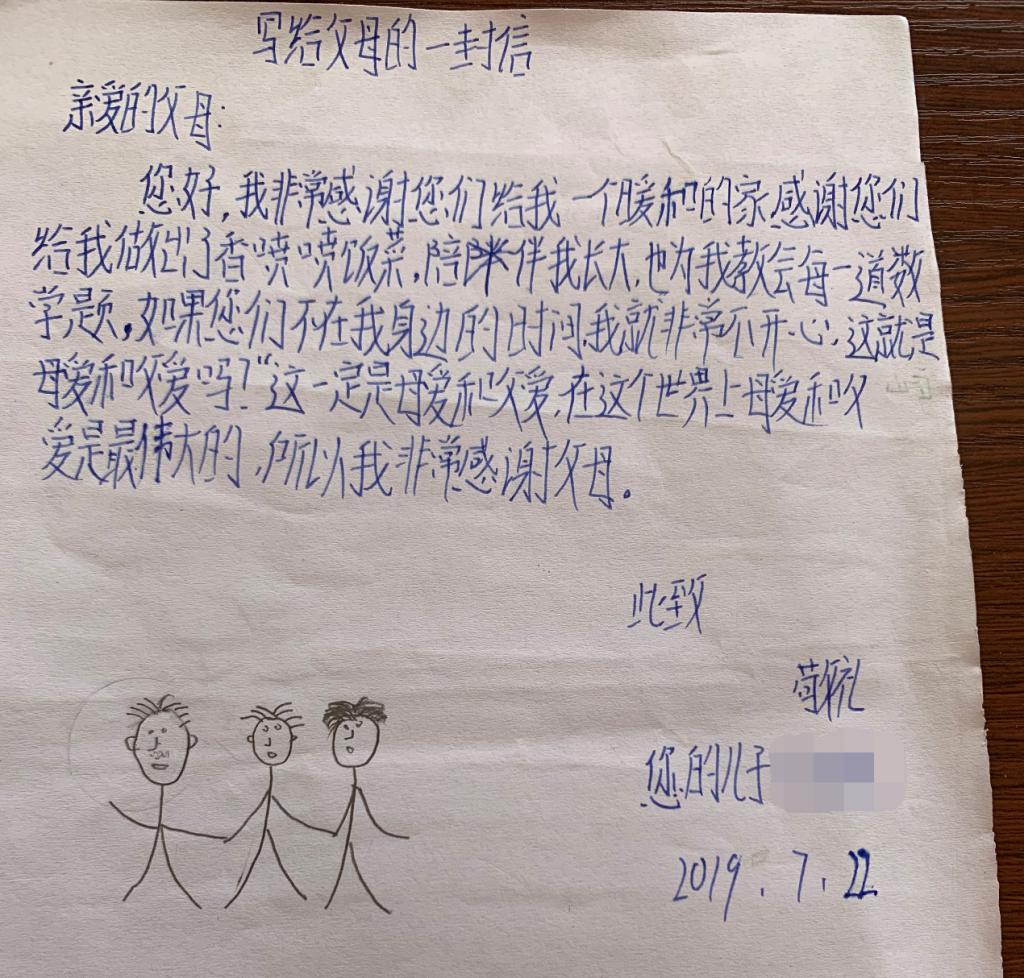 写给父母的一封信
亲爱的父母:
您好,我非常感谢您们给我一个暖和的家.感谢您们
给我做出了香喷喷饭菜,陪伴我长大,也为我教会每一道数
学题。如果您们不在我身边的时间,我就非常不开心,这就是
母爱和父爱吗?“这一定是母爱和父爱,在这个世界上母爱和父
爱是最伟大的,所以我非常感谢父母。
此致
敬礼
您的儿子
2019.7.22